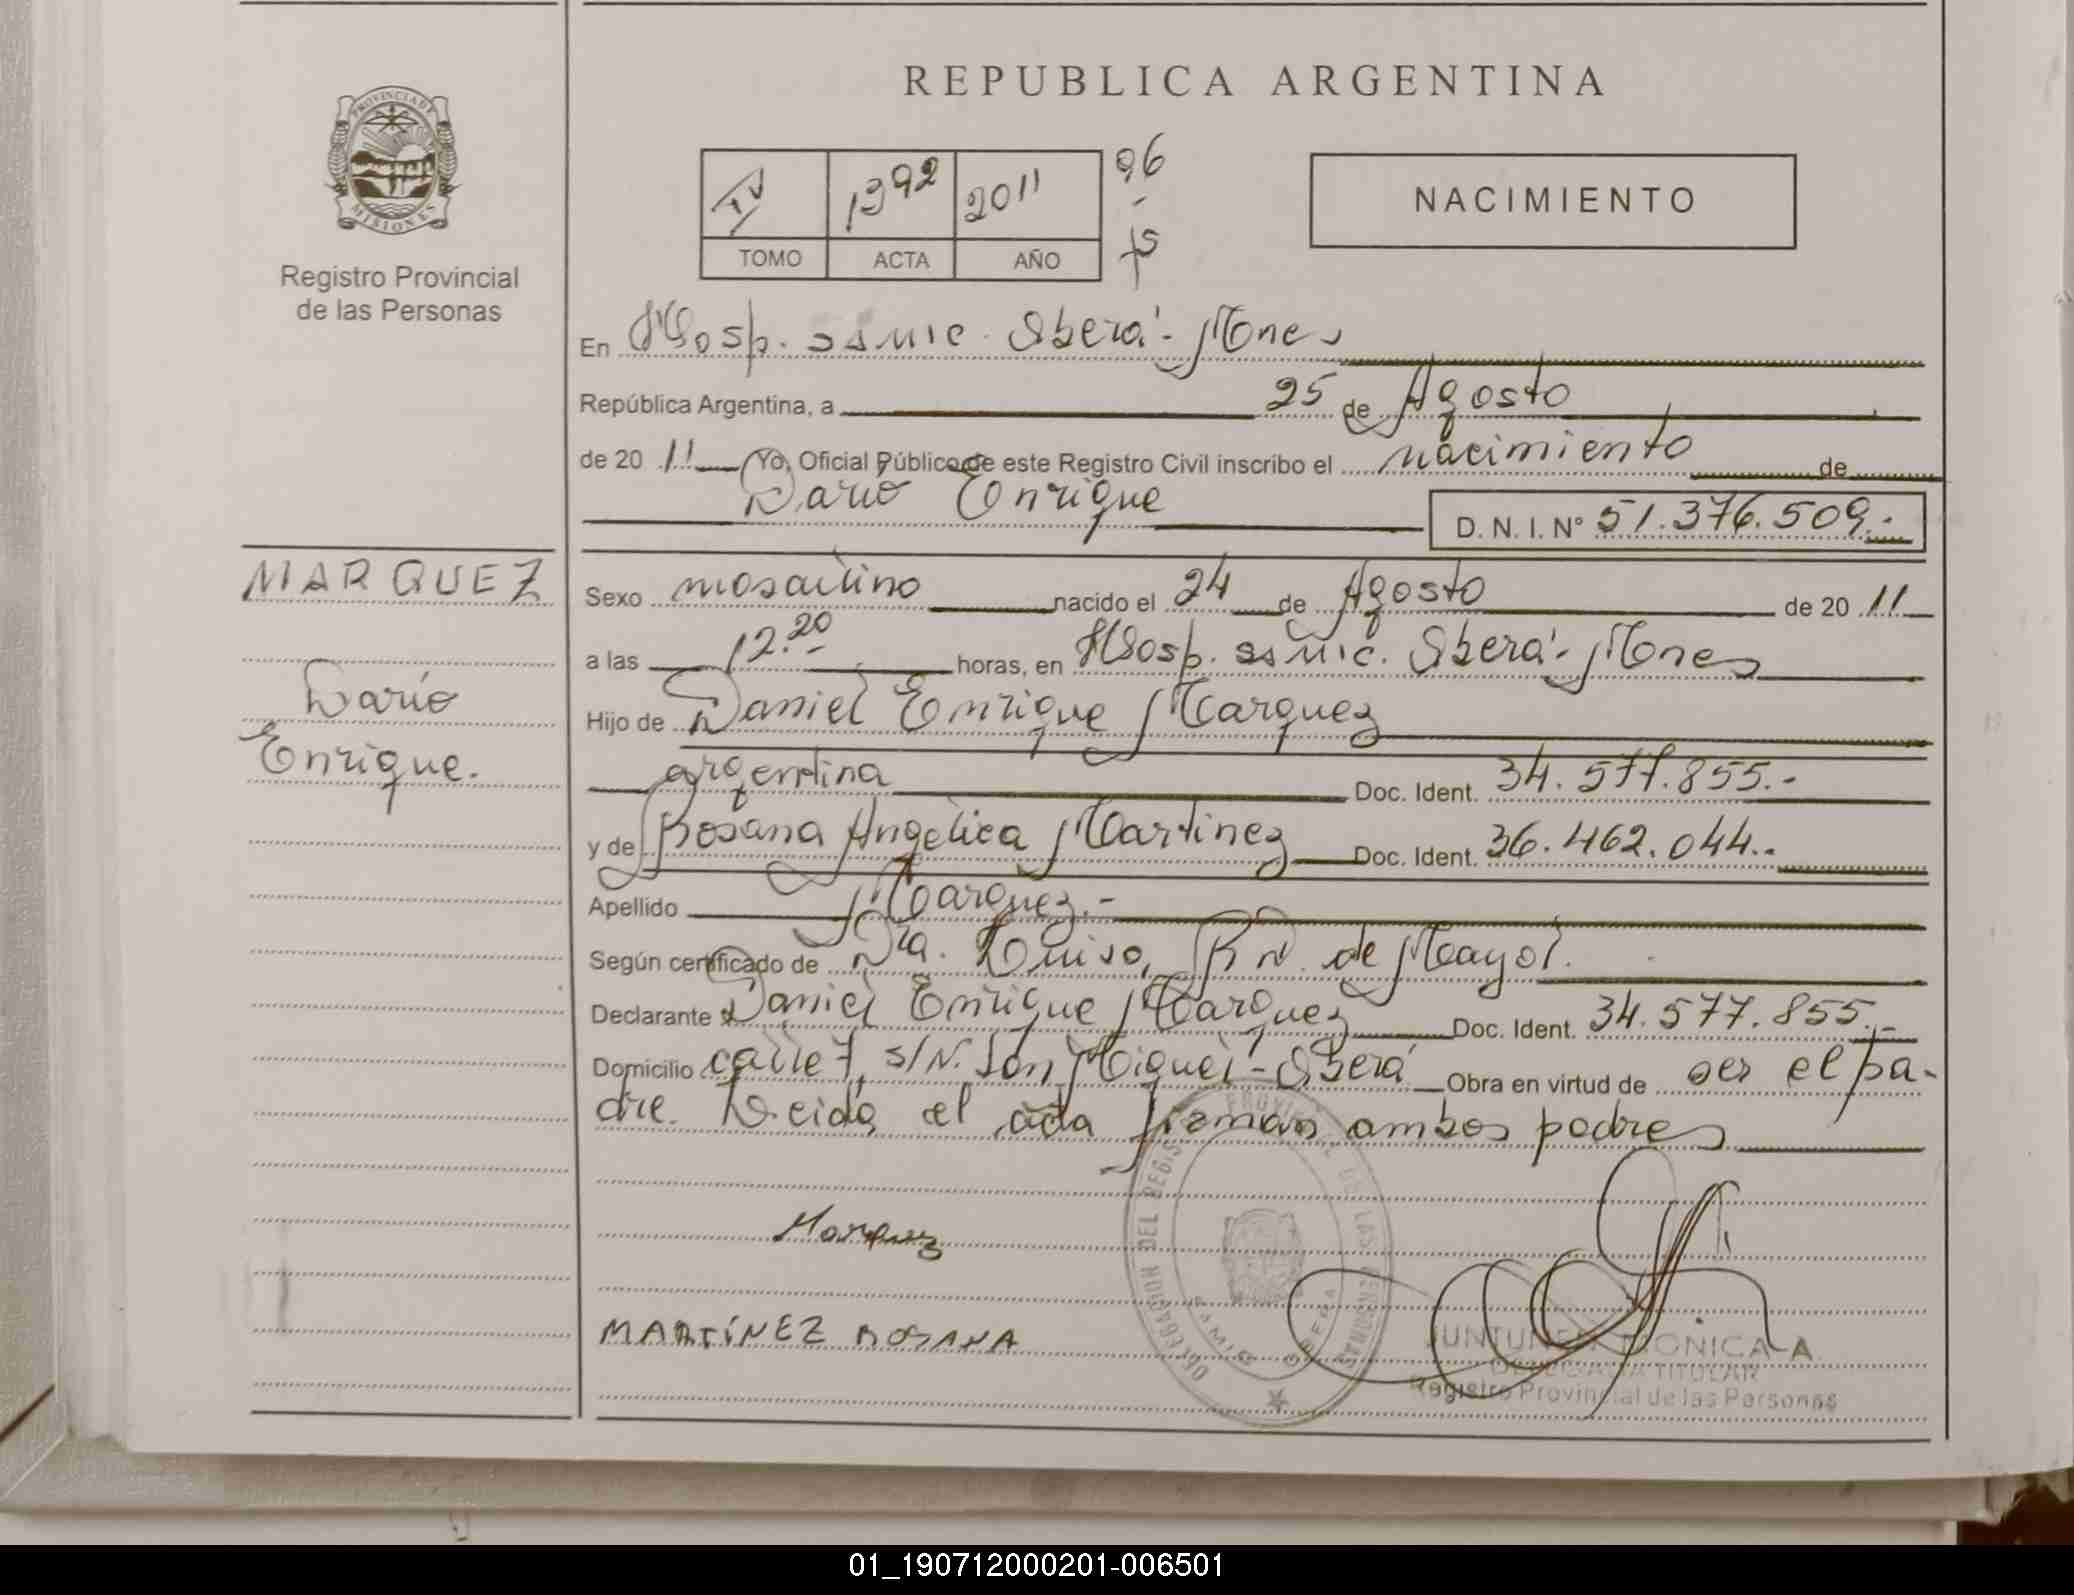 REPUBLICA ARGENTINA
PROVINCIA DE
MISIONES
Registro Provincial
de las Personas
IV 1392 2011 96
-
TOMO ACTA AÑO
NACIMIENTO
En Hosp. SAMIC. Oberá - Mnes
República Argentina, a 25 de Agosto
de 20 11 Yo, Oficial Público de este Registro Civil inscribo el nacimiento de
Darío Enrique D. N. I. N° 51.376.509.-
MARQUEZ
Darío
Enrique.
Sexo masculino nacido el 24 de Agosto de 20 11
a las 12.20 horas, en Hosp. SAMIC. Oberá - Mnes
Hijo de Daniel Enrique Marquez
argentina Doc. Ident. 34.577.855.-
y de Rosana Angélica Martinez Doc. Ident. 36.462.044.-
Apellido Marquez.-
Según certificado de Dra. Luisa, R N. de Mayol.
Declarante Daniel Enrique Marquez Doc. Ident. 34.577.855.-
Domicilio calle 7, S/N. San Miguel - Oberá Obra en virtud de ser el pa-
dre. Leída el acta firman ambos padres
Marquez
MARTÍNEZ ROSANA
DELEGACION DEL REGISTRO PROVINCIAL DE LAS PERSONAS
SAMIC OBERA
MONICA A.
DELEGADA TITULAR
Registro Provincial de las Personas
01_190712000201-006501